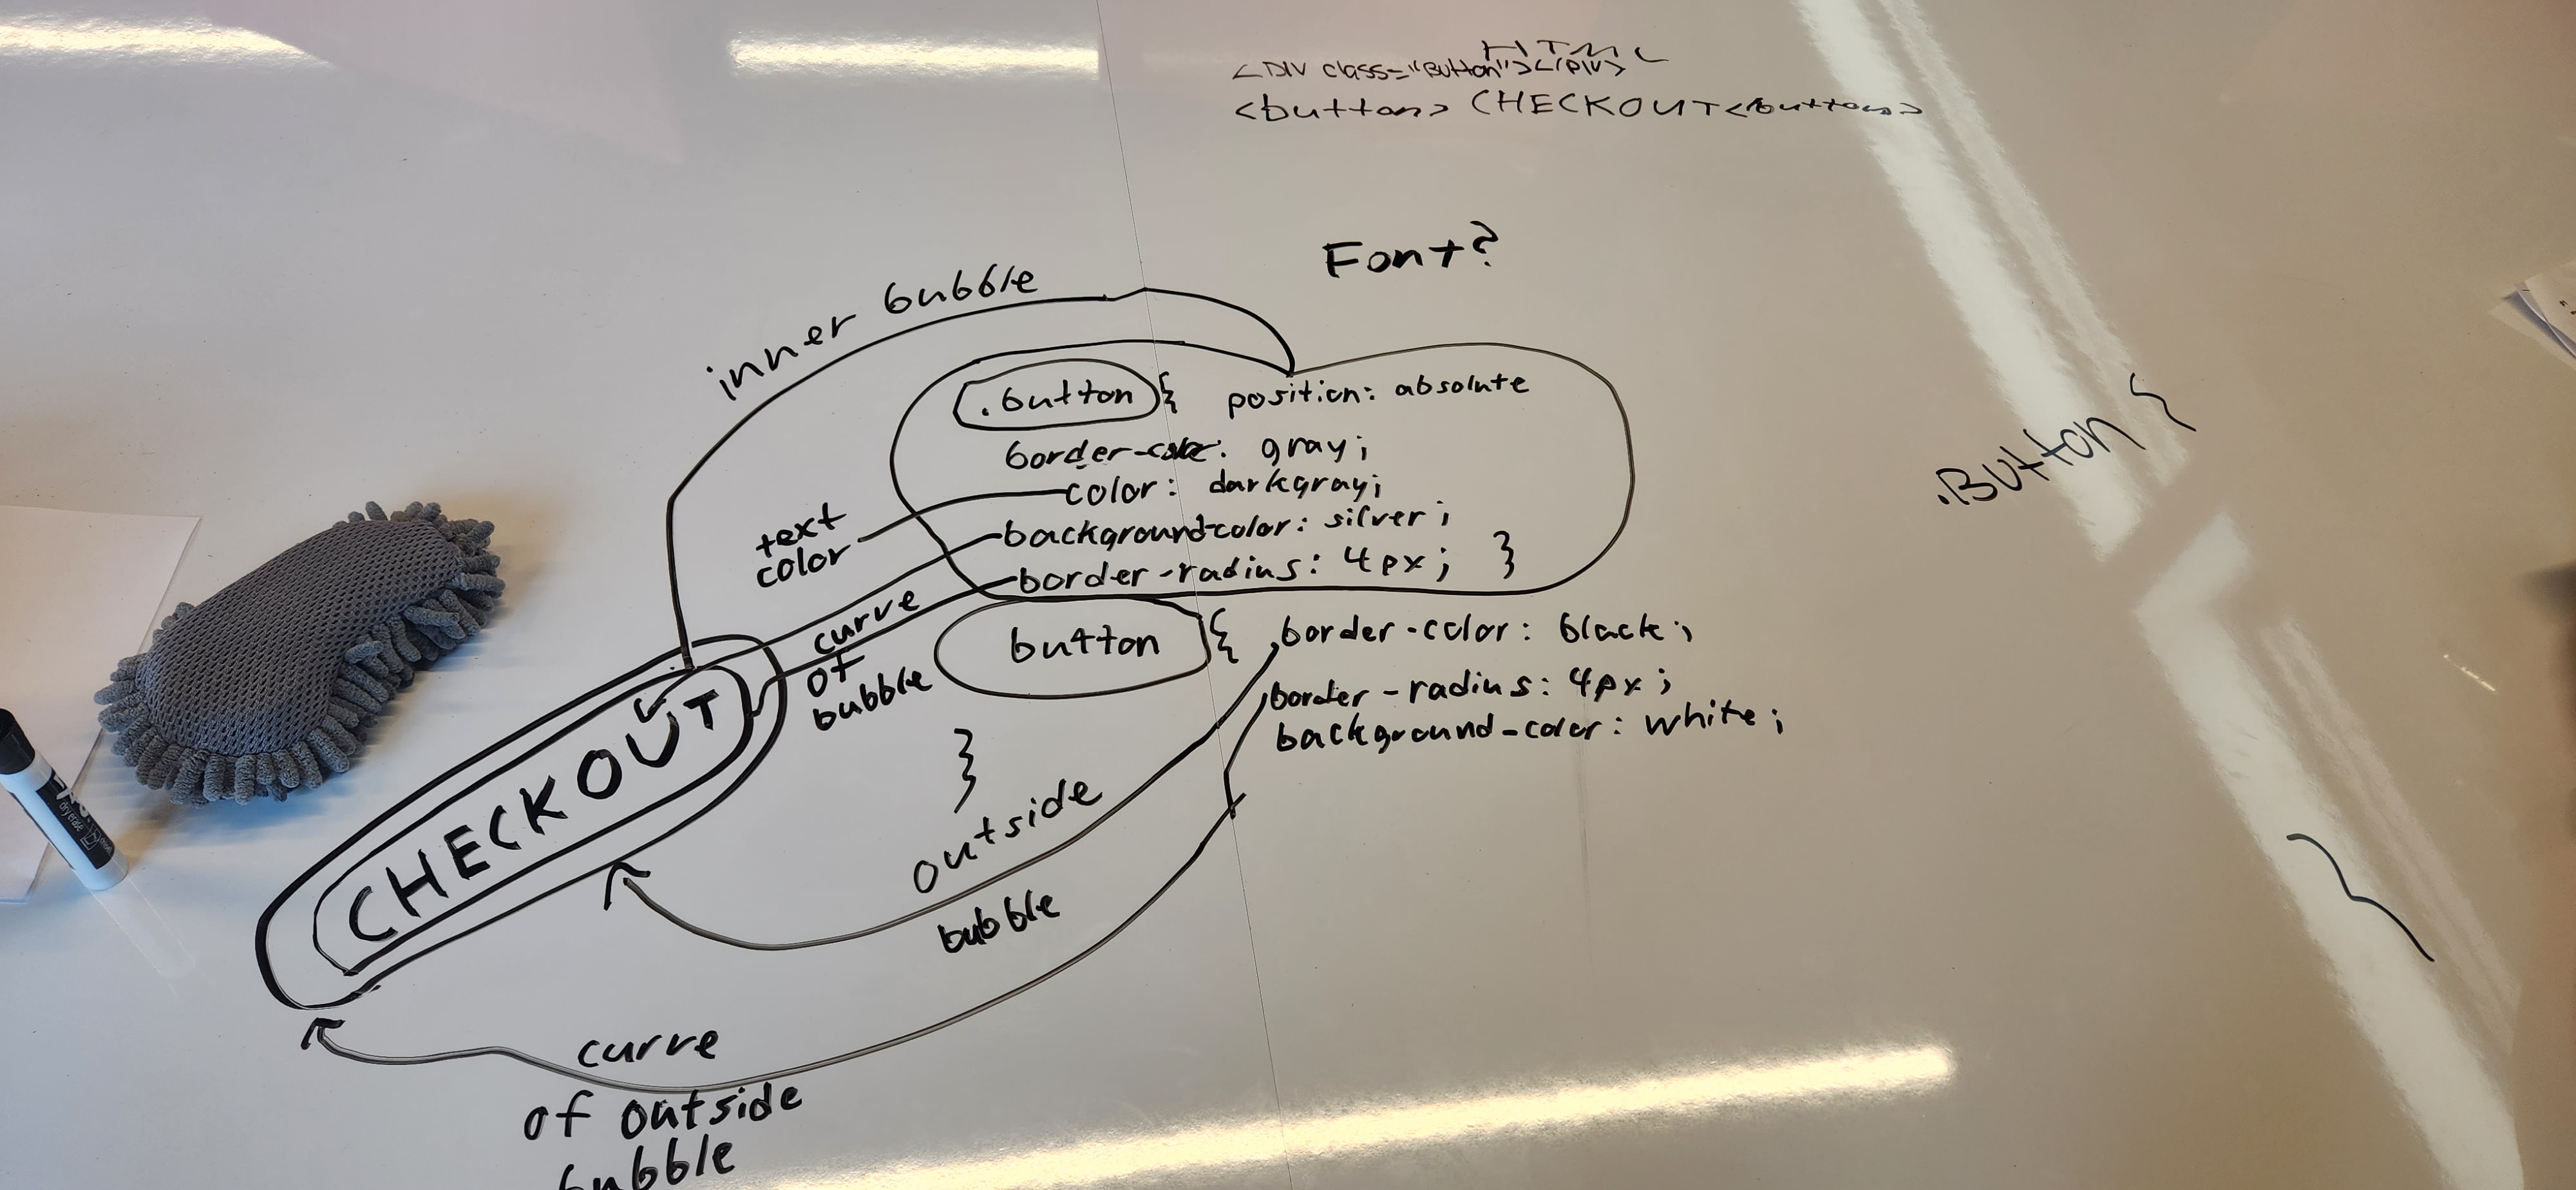 HTML
<DIV class="Button"></DIV>
<button> CHECKOUT<button>
Font?
inner bubble
.button { position: absolute
border-color: gray;
color: darkgray;
background-color: silver;
border-radius: 4px; }
text
color
curve
of
bubble
button { border-color: black;
border-radius: 4px;
background-color: white;
}
CHECKOUT
outside
bubble
curve
of outside
bubble
.Button {
}
dry erase